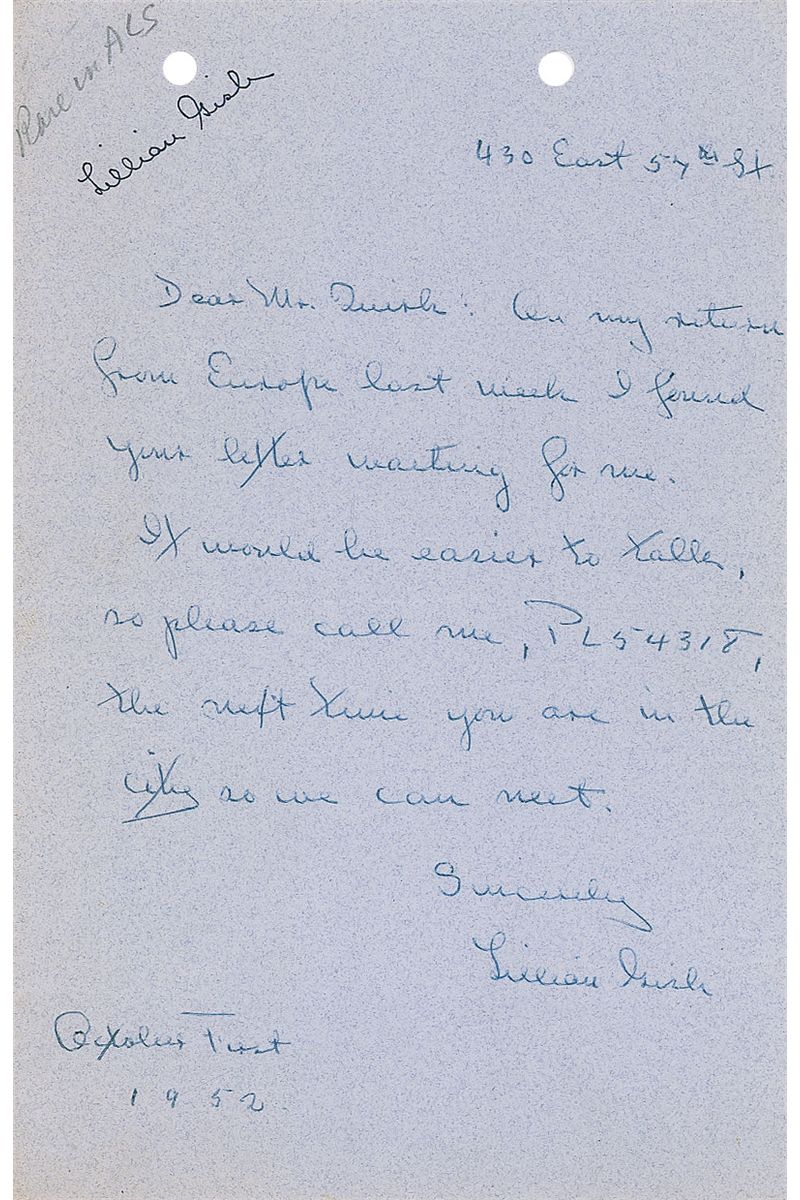 Rare in ALS
Lillian Gish
430 East 57th St.
Dear Mr. Quirk: On my return
from Europe last week I found
your letter waiting for me.
It would be easier to talk,
so please call me, PL54318,
the next time you are in the
city so we can meet.
Sincerely
Lillian Gish
October First
1952